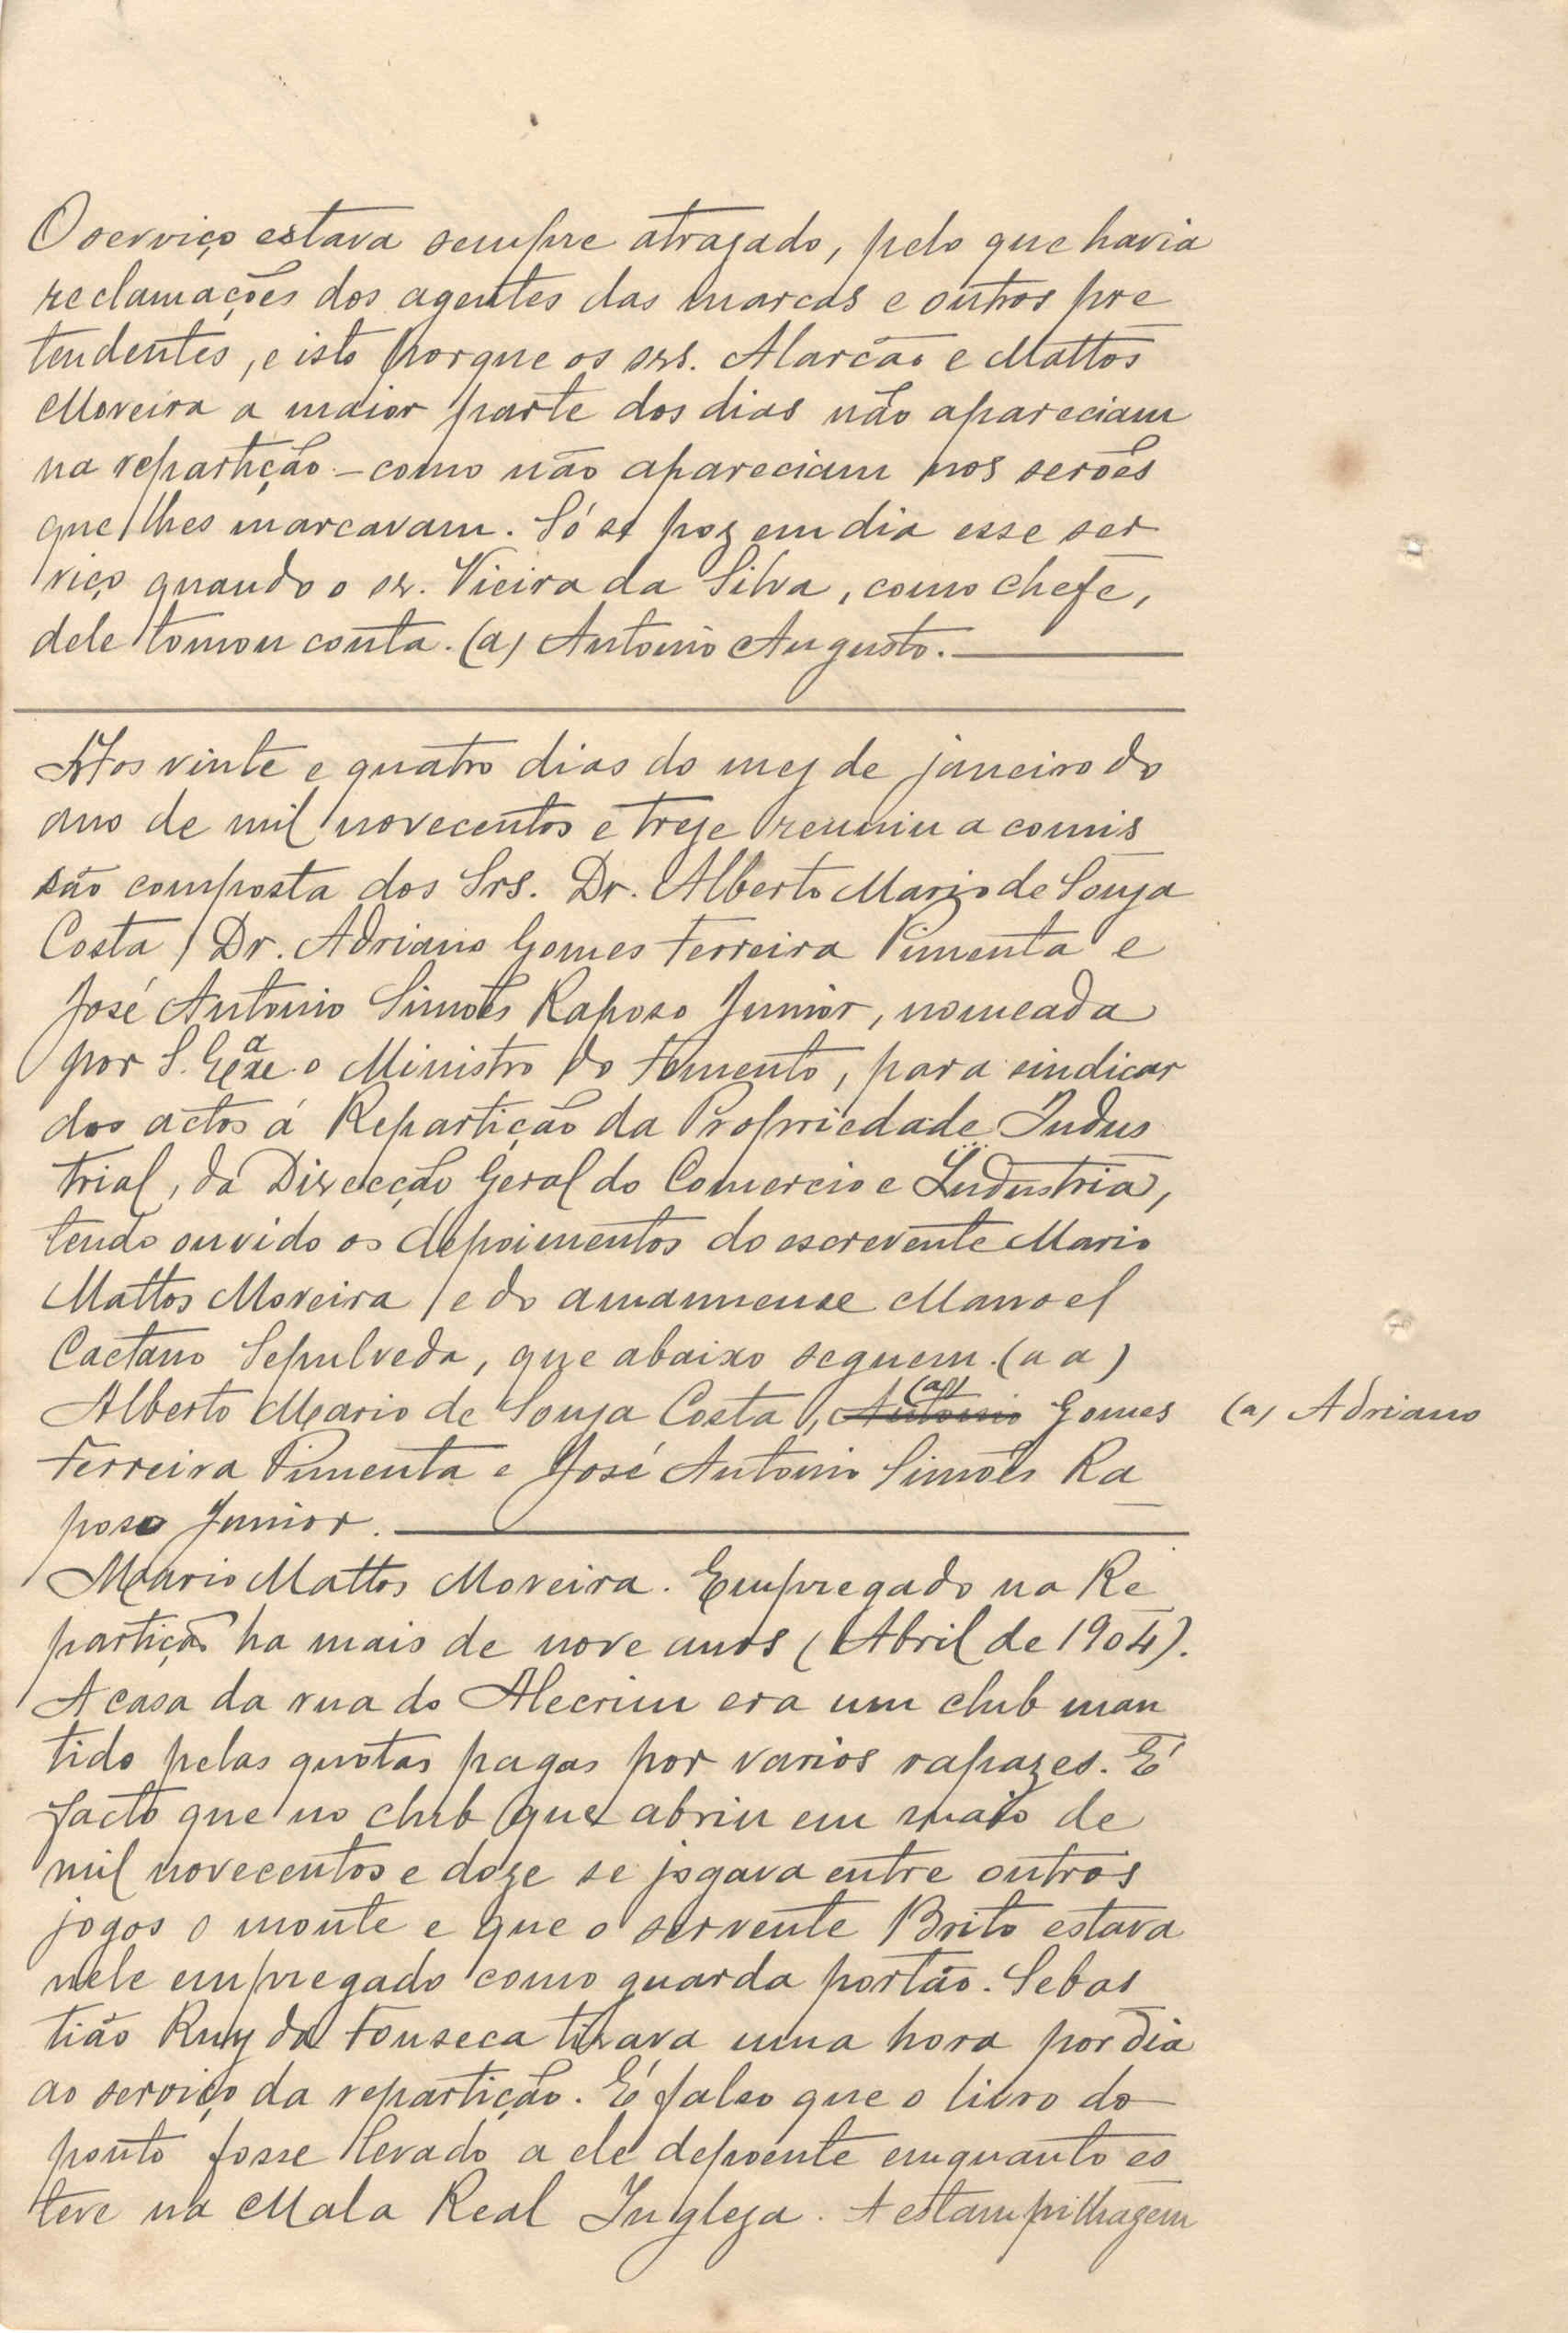 O serviço estava sempre atrazado, pelo que havia
reclamações dos agentes das marcas e outros pre
tendentes, e isto porque os srs. Alarcão e Mattos
Moreira a maior parte dos dias não apareciam
na repartição – como não apareciam nos serões
que lhes marcavam. Só se poz em dia esse ser
viço quando o sr. Vieira da Silva, como chefe,
dele tomou conta. (a) Antonio Augusto.
Aos vinte e quatro dias do mez de janeiro do
ano de mil novecentos e treze reuniu a comis
são composta dos Srs. Dr. Alberto Mario de Souza
Costa, Dr. Adriano Gomes Ferreira Pimenta e
José Antonio Simões Raposo Junior, nomeada
por S. Exª o Ministro do Fomento, para sindicar
dos actos á Repartição da Propriedade Indus
trial, da Direcção Geral do Comercio e Industria,
tendo ouvido os depoimentos do escrevente Mario
Mattos Moreira e do amanuense Manoel
Caetano Sepulveda, que abaixo seguem. (a a)
Alberto Mario de Souza Costa, (a) Antonio Gomes (a) Adriano
Ferreira Pimenta e José Antonio Simões Ra
poso Junior.
Mario Mattos Moreira. Empregado na Re
partição ha mais de nove anos (Abril de 1904).
A casa da rua do Alecrim era um club man
tido pelas quotas pagas por varios rapazes. É
facto que no club que abriu em maio de
mil novecentos e doze se jogava entre outros
jogos o monte e que o servente Brito estava
nele empregado como guarda portão. Sebas
tião Ruy da Fonseca tirava uma hora por dia
ao serviço da repartição. É falso que o livro do
ponto fosse levado a ele depoente emquanto es
teve na Mala Real Ingleza. A estampilhagem